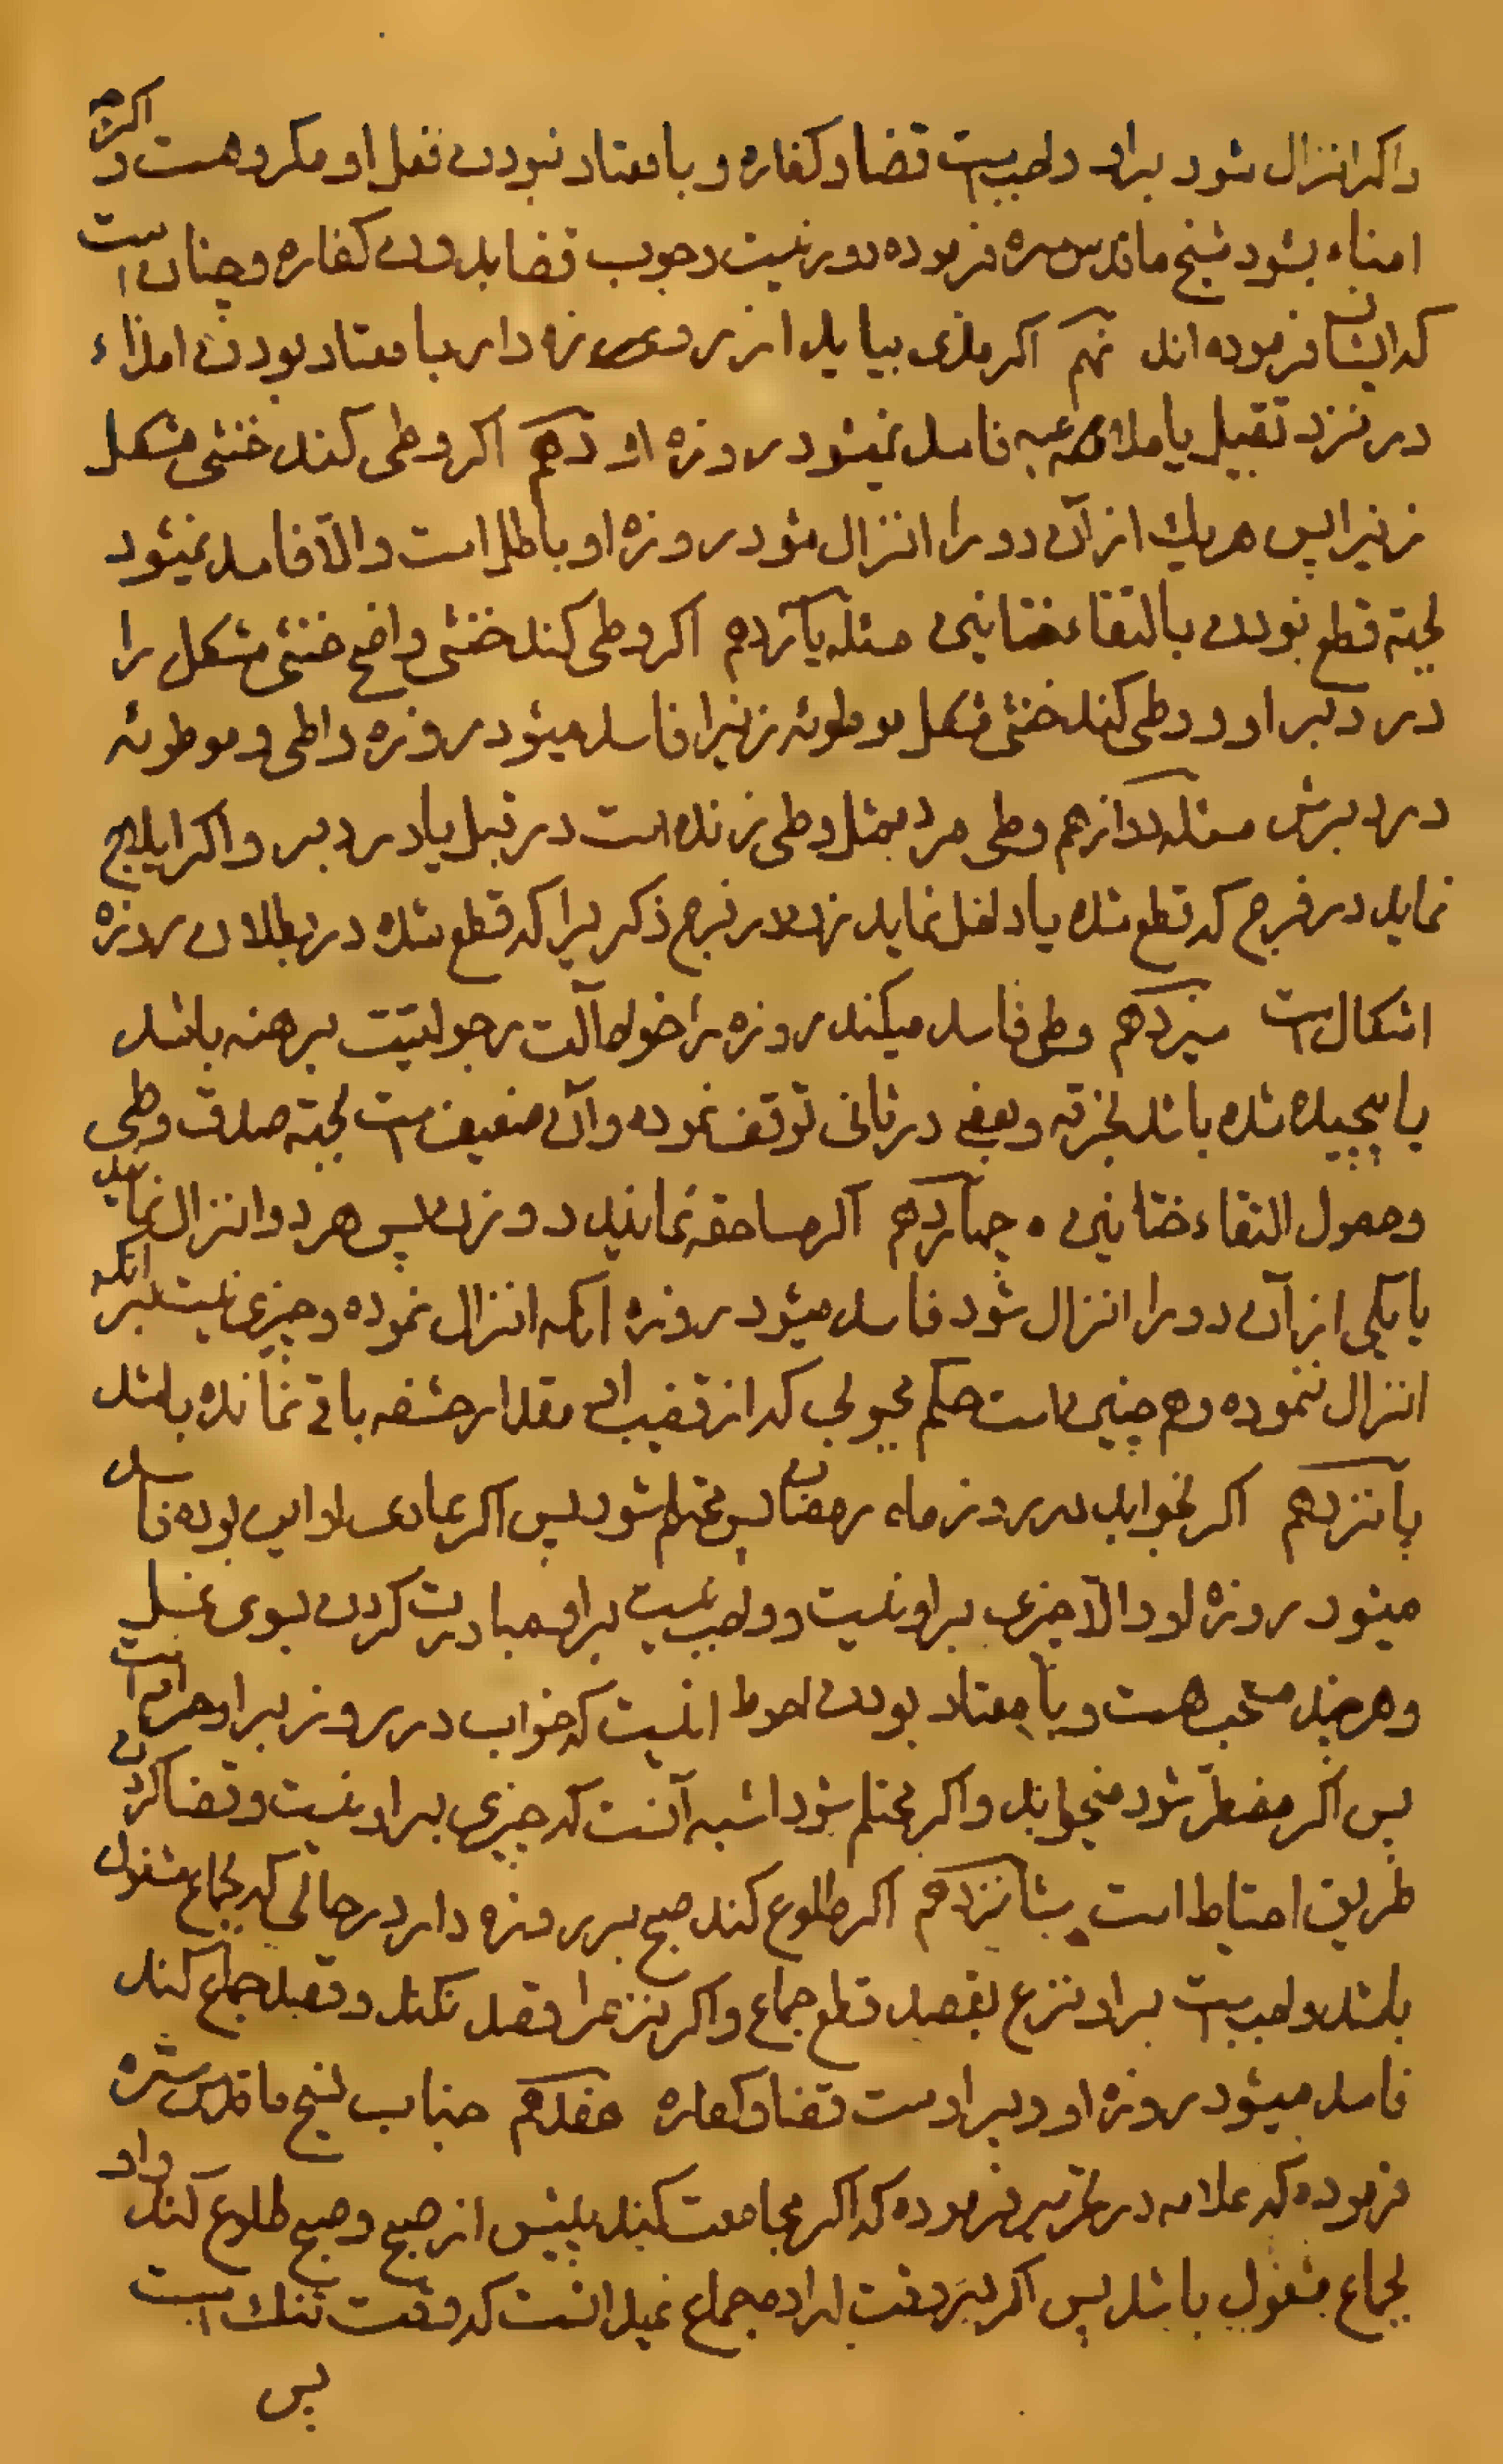 واکر انزال شود براو واجبست قضا و کفاره و با معتاد نبودن فعل او مکروهست و اکرچه
امناء بشود شیخ ما قدس سره فرموده دور نیست وجوب قضا بدون کفاره و چنان است
که ایشان فرموده اند نهم اکر مذی بیاید از روزه دار با معتاد بودن امذاء
در نزد تقبیل یا ملاعبه فاسد نمیشود روزه او دهم اکر وطی کند خنثی مشکل
زنیرا پس هریك از آن دو را انزال شود روزه او باطل است والّا فاسد نمیشود
لجهة قطع نبودن بالتقاء ختانین مسئله یازدهم اکر وطی کند خنثی واضح خنثی مشکل را
در دبر او و وطی کند خنثی مشکل موطوئه زنیرا فاسد میشود روزه واطی و موطوئه
در دبرش مسئله دوازدهم وطی مرده مثل وطی زنده است در قبل یا در دبر و اکر ایلاج
نماید در فرج که قطع شده یا داخل نماید زن در فرج ذکریرا که قطع شده در بطلان روزه
اشکال است سیزدهم وطی فاسد میکند روزه را خواه آلت رجولیّت برهنه باشد
یا پیچیده شده باشد بخرقه و بعضی در ثانی توقف نموده و آن ضعیف است لجهة صدق وطی
و حصول التقاء ختانین چهاردهم اکر مساحقه نمایند دو زن پس هر دو انزال نمایند
یا یکی از آن دو را انزال شود فاسد میشود روزه آنکه انزال نموده و چیزی نیست بر آنکه
انزال ننموده و هم چنین است حکم مجبوبی که از قضیب او مقدار حشفه باقی نمانده باشد
پانزدهم اکر بخوابد در روز ماه رمضان پس محتلم شود پس اکر عادی او این بوده فاسد
میشود روزه او والّا چیزی براو نیست و واجب نیست براو مبادرت کردن بسوی غسل
و هرچند مستحب هست و با معتاد بودن احوط اینست که خواب در روز براو حرام است
پس اکر مضطرّ شود میخوابد و اکر محتلم شود اشبه آنست که چیزی براو نیست و قضا کردن
طریق احتیاط است شانزدهم اکر طلوع کند صبح بر روزه دار در حالی که بجماع مشغول
باشد واجب است براو نزع بقصد قطع جماع و اکر نزع را قصد نکند و قصد جماع کند
فاسد میشود روزه او و براوست قضا و کفاره هفدهم جناب شیخ ما قدس سرّه
فرموده که علامه در تحریر فرموده که اکر مجامعت کند پیش از صبح و صبح طلوع کند و او
بجماع مشغول باشد پس اکر در وقت اراده جماع نمیدانست که وقت تنك است
پس